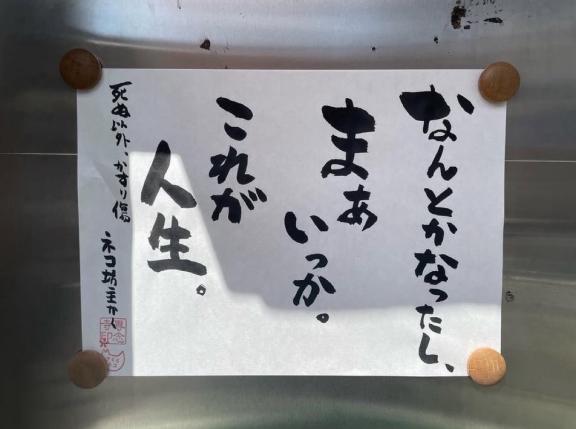 なんとかなったし、
まぁ
いっか。
これが
人生。
死ぬ以外、かすり傷
ネコ坊主かく